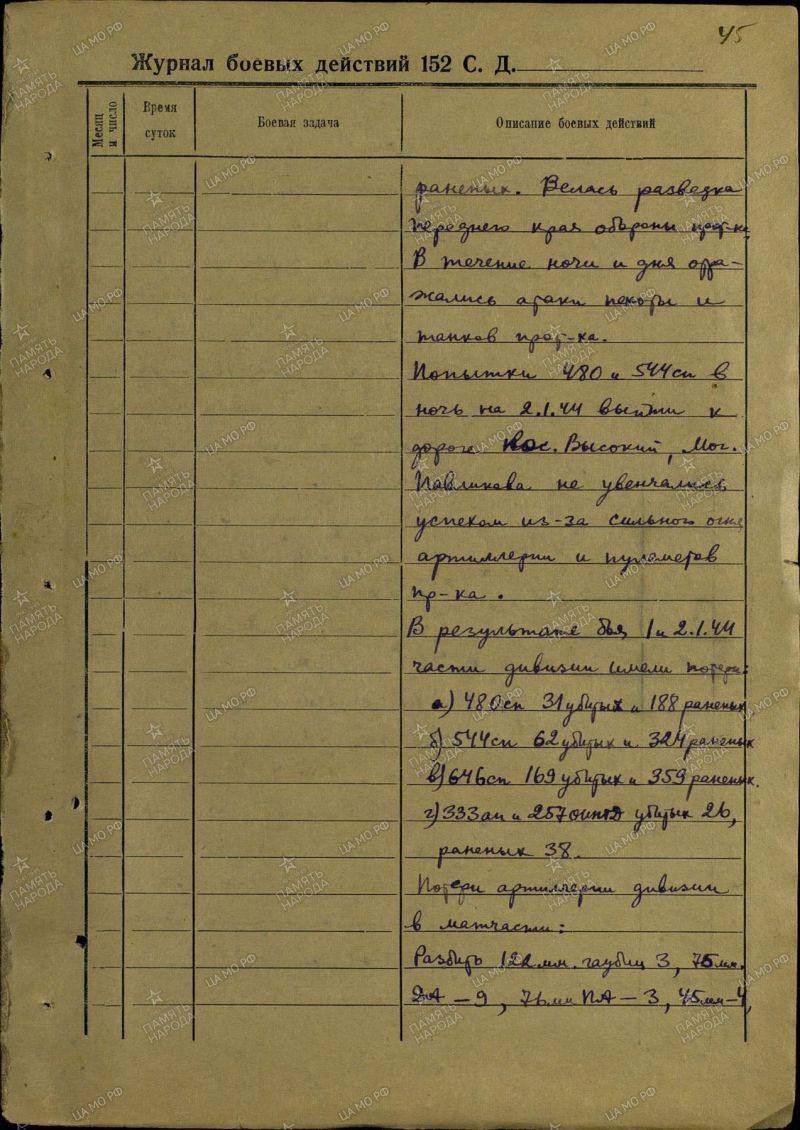 45
Журнал боевых действий 152 С. Д.
Месяц и число
Время суток
Боевая задача
Описание боевых действий
раненых. Велась разведка
переднего края обороны прот-ка
В течение ночи и дня отра-
жались атаки пехоты и
танков прот-ка.
Попытки 480 и 544сп в
ночь на 2.1.44 выйти к
дороге Высокий, Мог.
Павликова не увенчались
успехом из-за сильного огня
артиллерии и пулеметов
пр-ка.
В результате боя 1 и 2.1.44
части дивизии имели потери:
а) 480сп 31 убитых и 188 раненых
б) 544сп 62 убитых и 324 раненых
в) 646сп 169 убитых и 359 раненых.
г) 333ап и 257 оиптд убитых 26,
раненых 38.
Потери артиллерии дивизии
в матчасти:
Разбито 122 мм. гаубиц 3, 76мм.
ДА – 9, 76мм ПА – 3, 45мм – 4,
ПАМЯТЬ НАРОДА
ЦА МО РФ